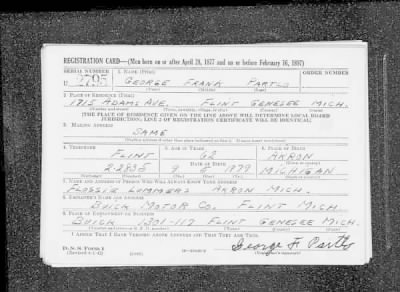 REGISTRATION CARD—(Men born on or after April 28, 1877 and on or before February 16, 1897)
SERIAL NUMBER 1. NAME (Print) ORDER NUMBER
U 2795 GEORGE FRANK PARTLO
(First) (Middle) (Last)
2. PLACE OF RESIDENCE (Print)
1715 ADAMS AVE. FLINT GENESEE MICH.
(Number and street) (Town, township, village, or city) (County) (State)
[THE PLACE OF RESIDENCE GIVEN ON THE LINE ABOVE WILL DETERMINE LOCAL BOARD
JURISDICTION; LINE 2 OF REGISTRATION CERTIFICATE WILL BE IDENTICAL]
3. MAILING ADDRESS
SAME
4. TELEPHONE 5. AGE IN YEARS 6. PLACE OF BIRTH
FLINT 62 AKRON
DATE OF BIRTH
9 5 1879 MICHIGAN
7. NAME AND ADDRESS OF PERSON WHO WILL ALWAYS KNOW YOUR ADDRESS
FLOSSIE LUMMERS AKRON MICH.
8. EMPLOYER'S NAME AND ADDRESS
BUICK MOTOR CO. FLINT MICH.
9. PLACE OF EMPLOYMENT OR BUSINESS
BUICK 1301-117 FLINT GENESEE MICH.
I AFFIRM THAT I HAVE VERIFIED ABOVE ANSWERS AND THAT THEY ARE TRUE.
D. S. S. Form 1
(Revised 4-1-42)
George F Partlo
(Registrant's signature)